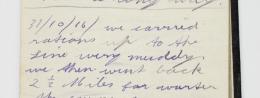 a long way.
31/10/16/ we carried
rations up to the
line very muddy
we then went back
2 ½ Miles for warter